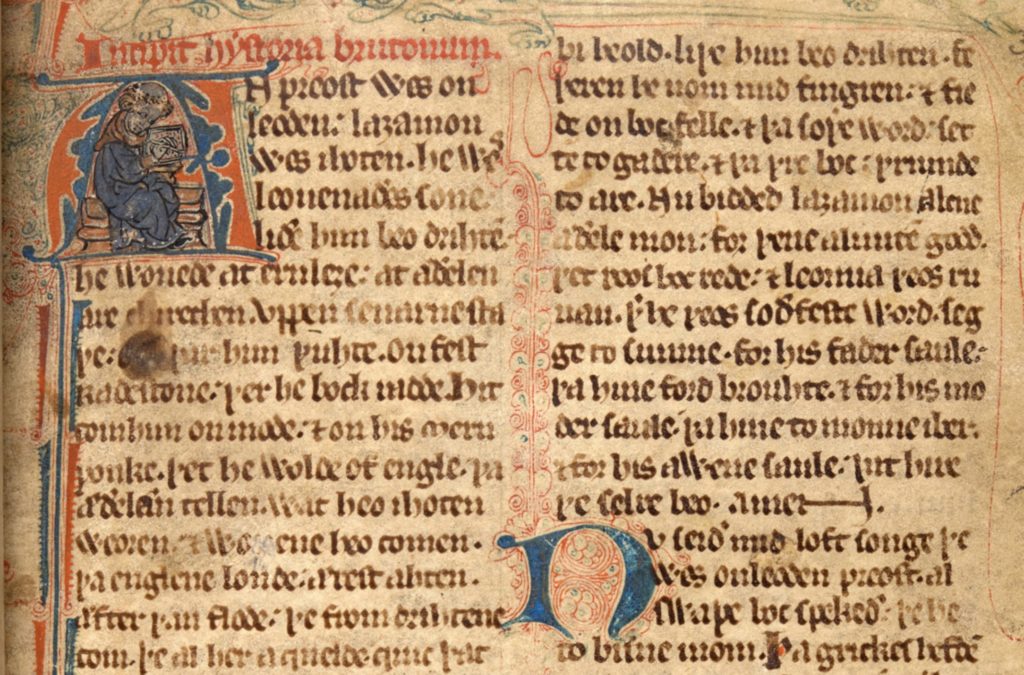 Incipit hystoria brutonum.
A preost wes on
leoden; laȝamon
wes ihoten. he wes
leouenaðes sone.
liðe him beo drihtē.
he wonede at ernleȝe; at æðelen
are chirechen. vppen seuarne sta
þe; þar him þuhte. on fest
Radestone; þer he bock radde. Hit
com him on mode. ⁊ on his mern
þonke. þet he wolde of engle. þa
æðelæn tellen. wat heo ihoten
weoren. ⁊ wonene heo comen.
þa englene londe. ærest ahten.
æfter þan flode; þe from drihtene
com. þe al her aquelde quic þat
bi heold. liþe him beo drihten. fe
þeren he nom mid fingren; ⁊ fie
de on boc felle. ⁊ þa soþe word; set
te to gadere. ⁊ þa þre boc; þrumde
to are. Nu bidded laȝamon alcne
æðele mon; for þene almitē godd.
þet þeos boc rede; ⁊ leornia þeos ru
nan. þ he þeos soðfeste word. seg
ge to sumne. for his fader saule;
þa hine forð brouhte. ⁊ for his mo
der saule. þa hine to monne iber.
⁊ for his awene saule. þat hire
þe selre beo. amen.
Nv seið mid loft songe þe
wes on leoden preost. al
swa þe boc spekeð; þe he
to bisne inom. þa grickes hefdē